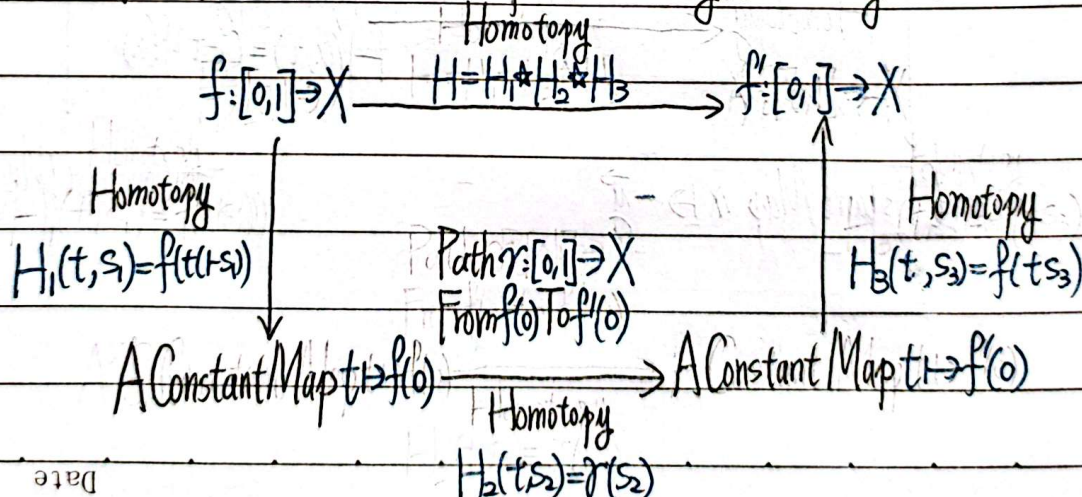 Homotopy
f:[0,1]→X
H=H₁☆H₂☆H₃
f':[0,1]→X
Homotopy
H₁(t,s₁)=f(t(1-s₁))
Path γ:[0,1]→X
From f(0) To f'(0)
Homotopy
H₃(t,s₃)=f(ts₃)
A Constant Map t↦f(0)
A Constant Map t↦f'(0)
Homotopy
H₂(t,s₂)=γ(s₂)
Date